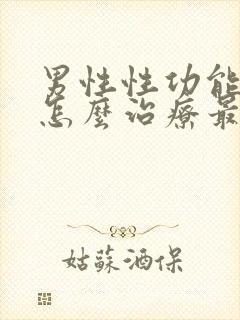 男性性功能
怎麼治療最
姑蘇酒保